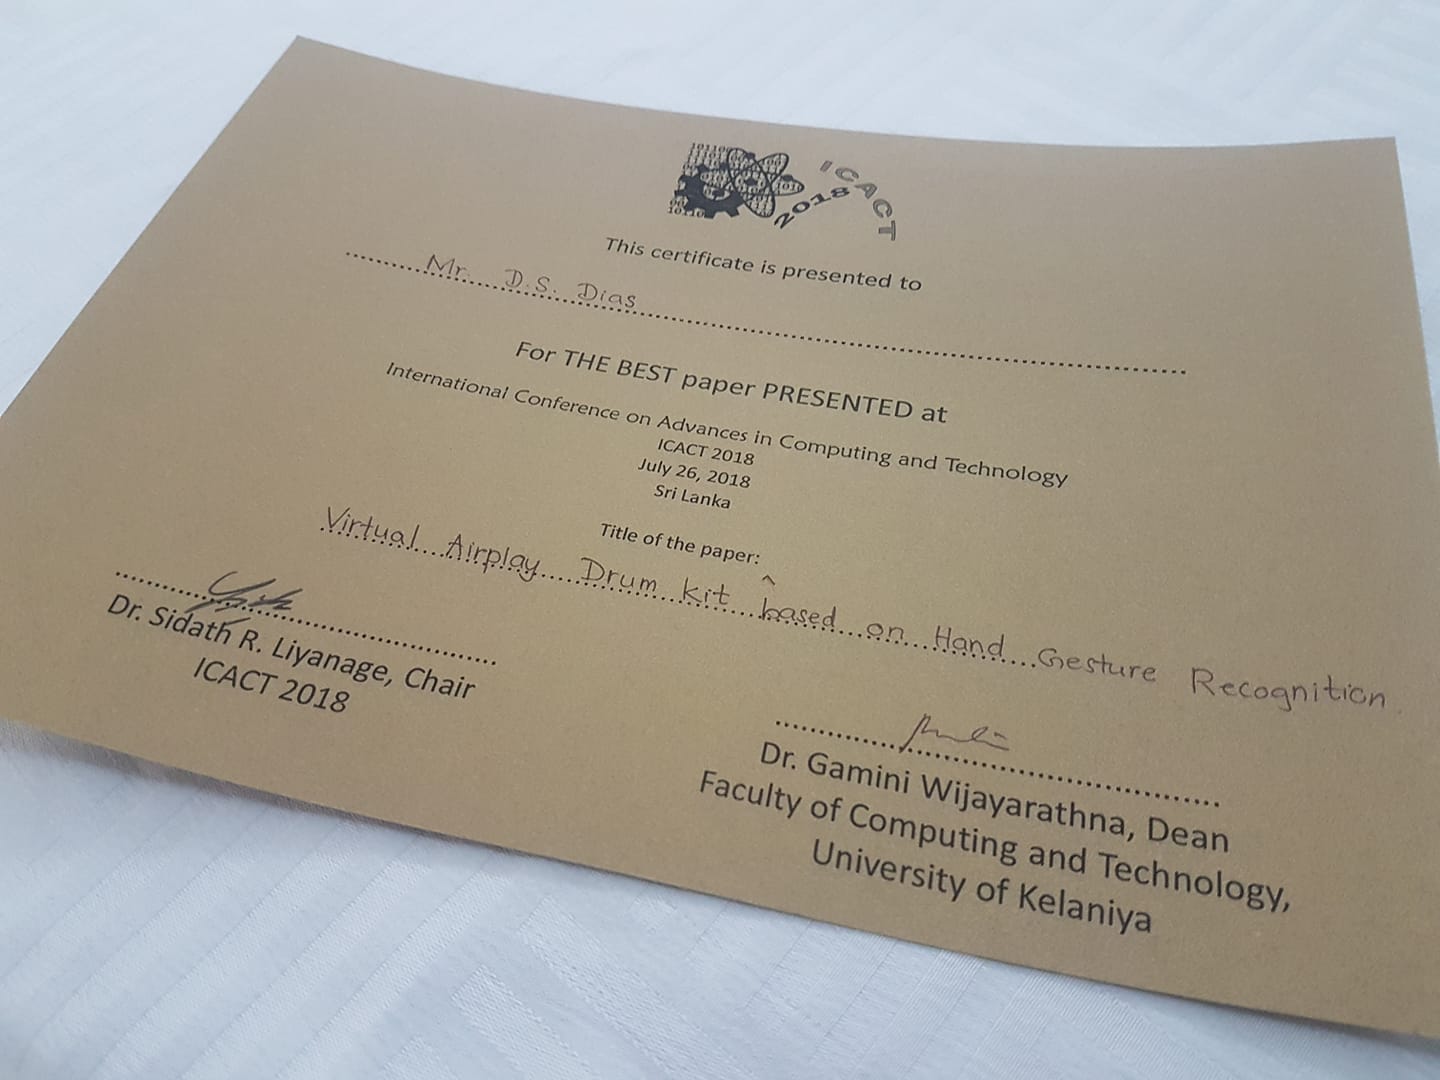 ICACT
2018
This certificate is presented to
Mr. D.S. Dias
For THE BEST paper PRESENTED at
International Conference on Advances in Computing and Technology
ICACT 2018
July 26, 2018
Sri Lanka
Title of the paper:
Virtual Airplay Drum kit based on Hand Gesture Recognition
Dr. Sidath R. Liyanage, Chair
ICACT 2018
Dr. Gamini Wijayarathna, Dean
Faculty of Computing and Technology,
University of Kelaniya